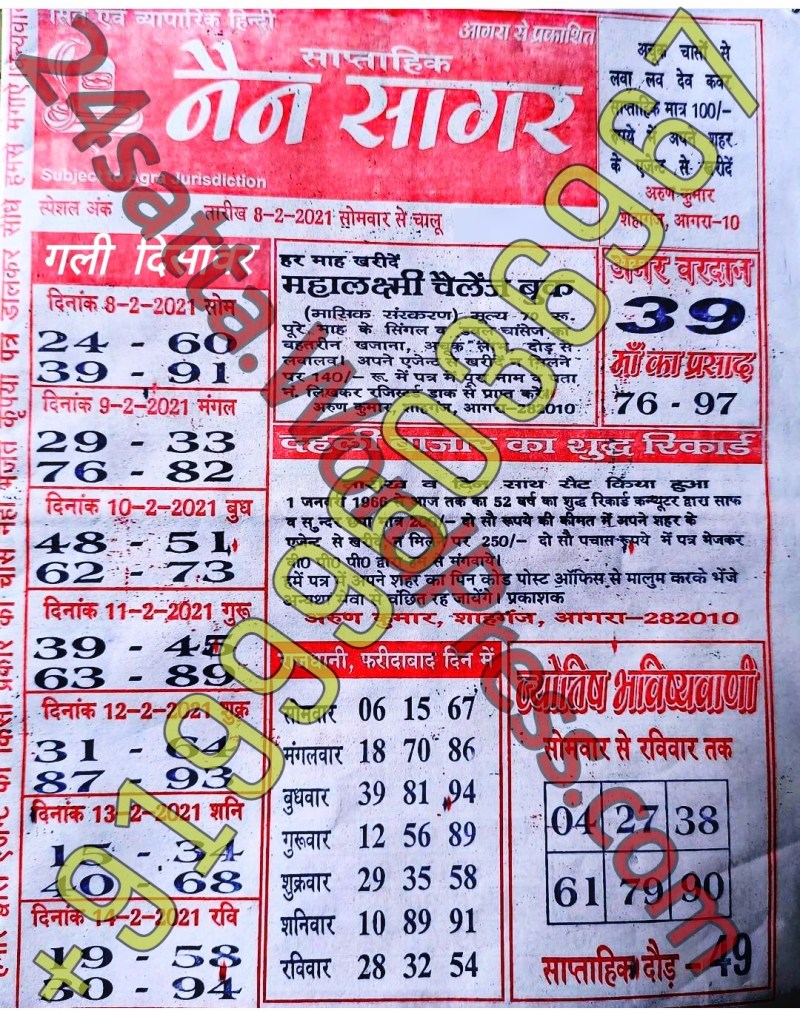 सित एवं व्यापारिक हिन्दी
आगरा से प्रकाशित
साप्ताहिक
नैन सागर
Subject to Agra Jurisdiction
स्पेशल अंक
तारीख 8-2-2021 सोमवार से चालू
अचूक चासों से
लवा लव देव कवर
साप्ताहिक मात्र 100/-
रूपये में अपने शहर
के एजेन्ट से खरीदें
अरुण कुमार
शाहगंज, आगरा-10
गली दिसावर
दिनांक 8-2-2021 सोम
24 - 60
39 - 91
दिनांक 9-2-2021 मंगल
29 - 33
76 - 82
दिनांक 10-2-2021 बुध
48 - 51
62 - 73
दिनांक 11-2-2021 गुरू
39 - 45
63 - 89
दिनांक 12-2-2021 शुक्र
31 - 64
87 - 93
दिनांक 13-2-2021 शनि
15 - 34
40 - 68
दिनांक 14-2-2021 रवि
19 - 58
80 - 94
हर माह खरीदें
महालक्ष्मी चैलेंज बुक
(मासिक संस्करण) मूल्य 70 रू.
पूरे माह के सिंगल व डबल चांसिज का
बेहतरीन खजाना, अचूक लाभ, दौड़ से
लवालव। अपने एजेन्ट से खरीदें न मिलने
पर 140/- रू. में पत्र में पूरा नाम व पता
में लिखकर रजिस्टर्ड डाक से प्राप्त करें।
अरुण कुमार, शाहगंज, आगरा-282010
अमर वरदान
39
माँ का प्रसाद
76 - 97
देहली बाजार का शुद्ध रिकार्ड
तारीख व दिन साथ सैट किया हुआ
1 जनवरी 1966 से आज तक का 52 बर्ष का शुद्ध रिकार्ड कम्प्यूटर द्वारा साफ
व सुन्दर छपा मात्र 200/- दो सौ रूपये की कीमत में अपने शहर के
एजेन्ट से खरीदें न मिलने पर 250/- दो सौ पचास रूपये में पत्र भेजकर
वी0 पी0 पी0 द्वारा हम से मंगवाये।
पत्र में अपने शहर का पिन कोड पोस्ट ऑफिस से मालुम करके भेंजे
अन्यथा सेवा से वंचित रह जायेंगे। प्रकाशक
अरुण कुमार, शाहगंज, आगरा-282010
राजधानी, फरीदाबाद दिन में
सोमवार 06 15 67
मंगलवार 18 70 86
बुधवार 39 81 94
गुरूवार 12 56 89
शुक्रवार 29 35 58
शनिवार 10 89 91
रविवार 28 32 54
ज्योतिष भविष्यवाणी
सोमवार से रविवार तक
04 27 38
61 79 90
साप्ताहिक दौड़ - 49
24satta.WordPress.com